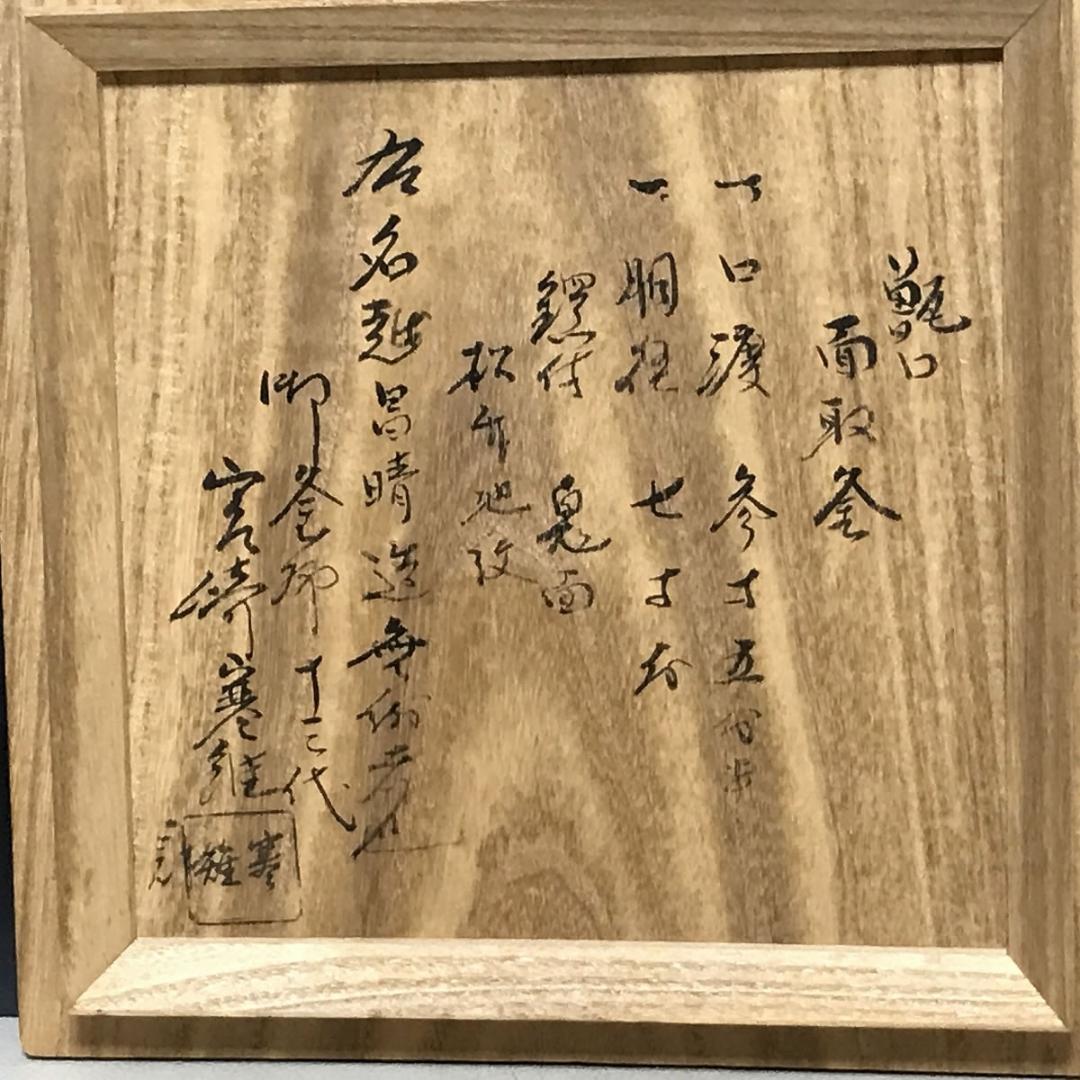 甑口
面取釜
一 口渡 参寸五分半
一 胴径 七寸
鐶付 鬼面
松竹地紋
右名越昌晴造無紛者也
御釜師十二代
宮崎寒雉
寒雉